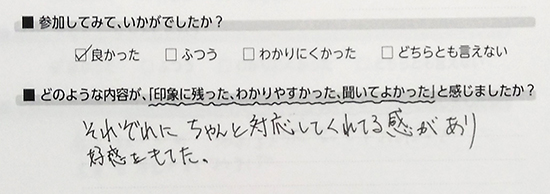 ■ 参加してみて、いかがでしたか？
☑良かった □ふつう □わかりにくかった □どちらとも言えない
■ どのような内容が、「印象に残った、わかりやすかった、聞いてよかった」と感じましたか？
それぞれに ちゃんと対応してくれてる感があり
好感をもてた。